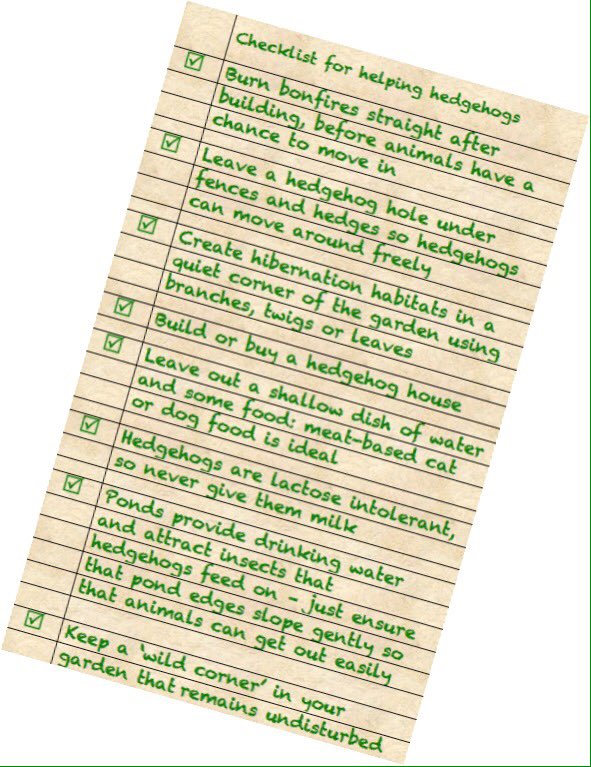 Checklist for helping hedgehogs
Burn bonfires straight after
building, before animals have a
chance to move in
Leave a hedgehog hole under
fences and hedges so hedgehogs
can move around freely
Create hibernation habitats in a
quiet corner of the garden using
branches, twigs or leaves
Build or buy a hedgehog house
Leave out a shallow dish of water
and some food: meat-based cat
or dog food is ideal
Hedgehogs are lactose intolerant,
so never give them milk
Ponds provide drinking water
and attract insects that
hedgehogs feed on - just ensure
that pond edges slope gently so
that animals can get out easily
Keep a 'wild corner' in your
garden that remains undisturbed